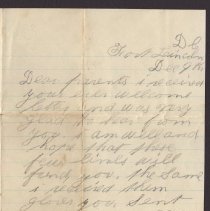 D.C.
Fort Lincoln
Dec 9th
Dear parents i received
your ever welcome
letter and was very
glad to hear from
you. i am well and
hope that these
few lines will
find you the same
i received them
gloves you sent